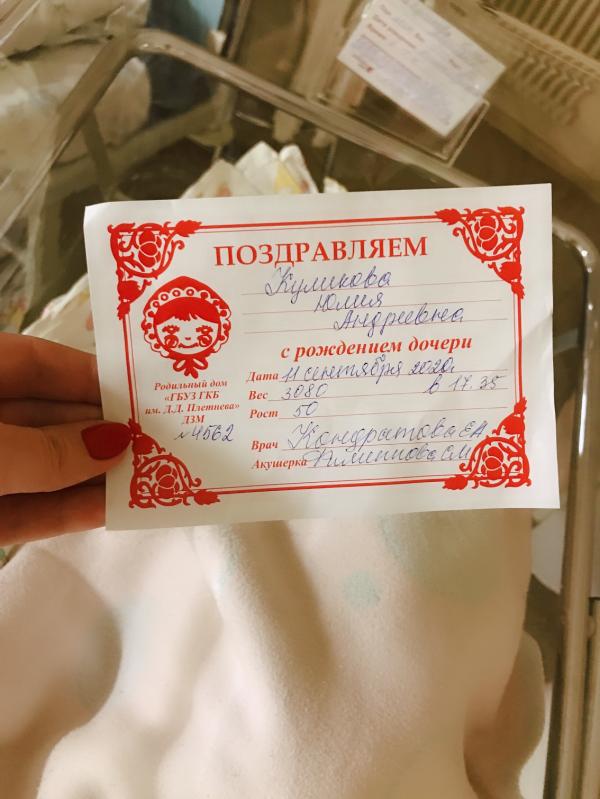 ПОЗДРАВЛЯЕМ
Куликова
Юлия
Андреевна
с рождением дочери
Дата 11 сентября 2020
Вес 3080 в 17.35
Рост 50
Врач Кондратова Е А
Акушерка Филиппова С М
Родильный дом
«ГБУЗ ГКБ
им. Д.Д. Плетнева»
ДЗМ
№4562